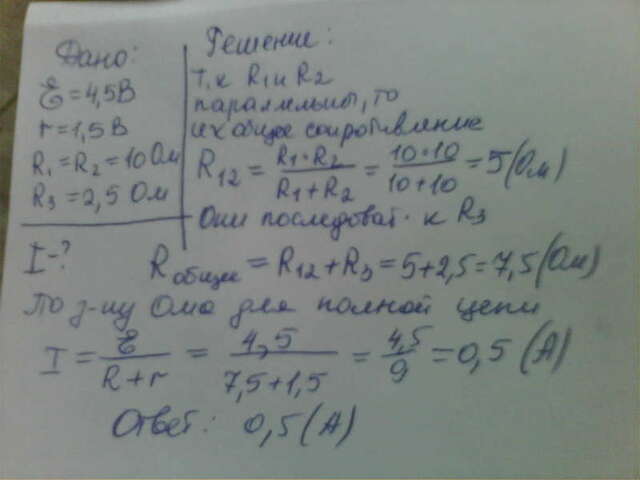 Дано:
ℰ = 4,5 В
r = 1,5 В
R₁ = R₂ = 10 Ом
R₃ = 2,5 Ом
I - ?
Решение:
Т.к R₁ и R₂
параллельны, то
их общее сопротивление
R₁₂ = R₁·R₂ / R₁+R₂ = 10·10 / 10+10 = 5 (Ом)
Они последоват. к R₃
R общее = R₁₂ + R₃ = 5 + 2,5 = 7,5 (Ом)
По з-ну Ома для полной цепи
I = ℰ / R+r = 4,5 / 7,5+1,5 = 4,5 / 9 = 0,5 (А)
Ответ: 0,5 (А)